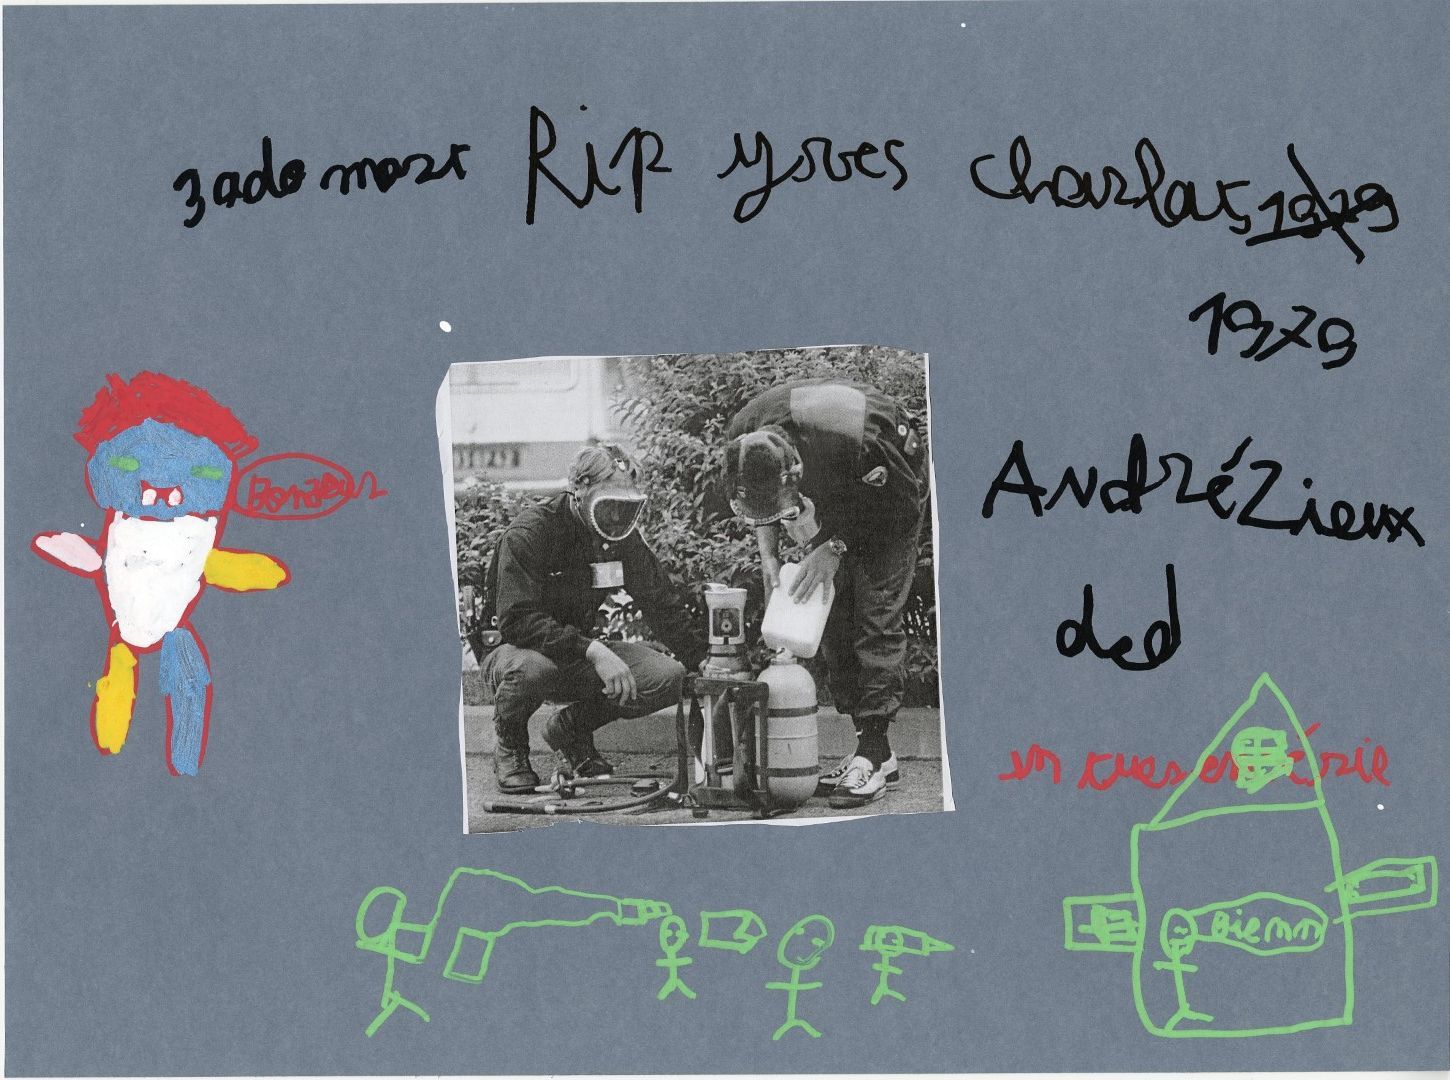 3 ado mort RiP yves Charlat, 1979
1979
AndréZieux
dcd
Bonjour
en tues en série
Bienn